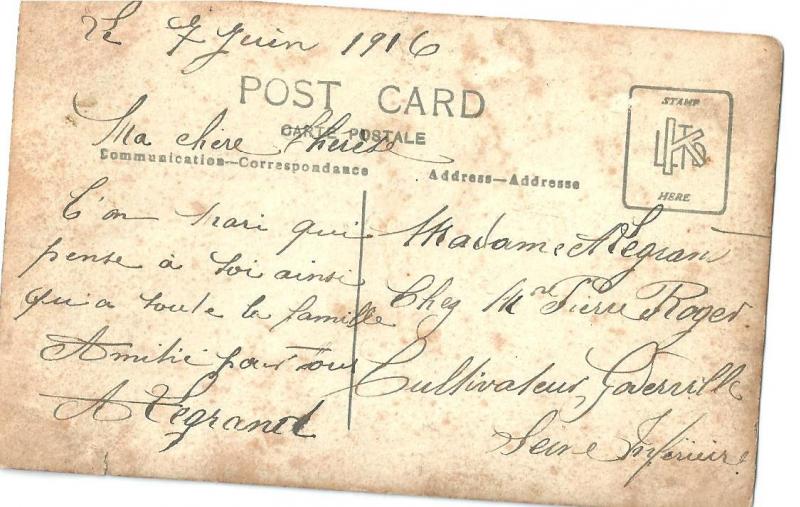 Le 7 Juin 1916
POST CARD
CARTE POSTALE
Ma chère Thérèse
Communication—Correspondance
Address—Addresse
STAMP
HERE
T'on Mari qui
pense à toi ainsi
qu'a toute la famille
Amitié pour tous
A Legrand
Madame A Legrand
Chez Mr Pierre Roger
Cultivateur, Goderville
Seine Inférieure